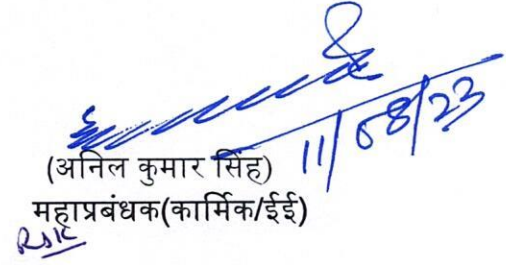 11/08/23
(अनिल कुमार सिंह)
महाप्रबंधक(कार्मिक/ईई)